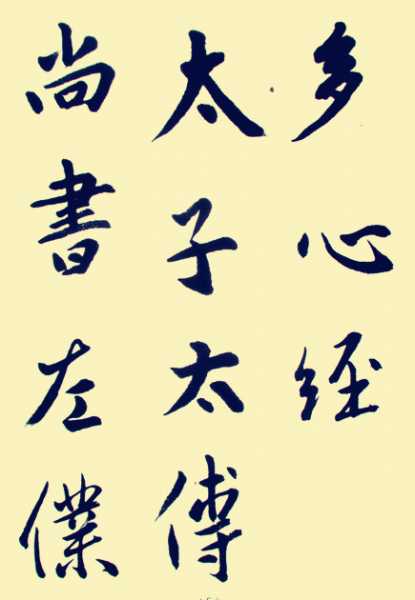 多心經
太子太傅
尚書左僕